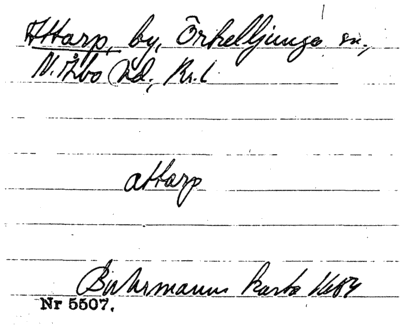 Attarp, by, Örkelljunga sn,
N. Åbo hd, Kr. l
attarp
Buhrmanns karta 1684
Nr 5507.